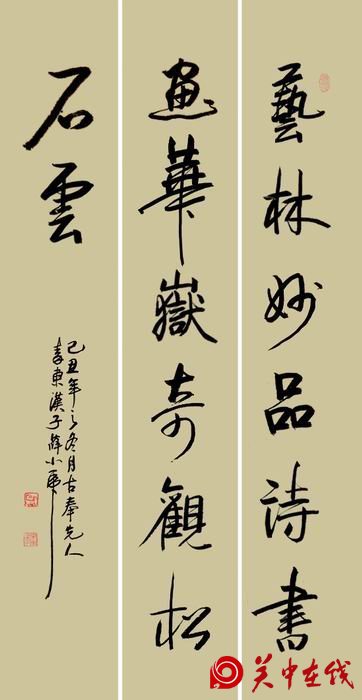 藝林妙品詩書
畫華嶽奇觀松
石雲
己丑年之冬月古奉先人
秦東漢子薛小虎
关中在线